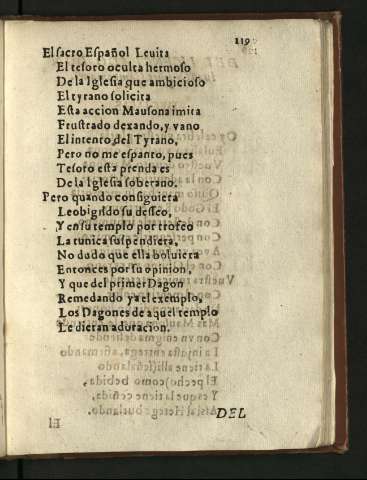 119
El sacro Español Leuita
El tesoro oculta hermoso
De la Iglesia que ambicioso
El tyrano solicita
Esta accion Mausona imita
Frustrado dexando, y vano
El intento del Tyrano,
Pero no me espanto, pues
Tesoro esta prenda es
De la Iglesia soberano.
Pero quando consiguiera
Leobigildo su desseo,
Y en su templo por trofeo
La tunica suspendiera,
No dudo que ella boluiera
Entonces por su opinion,
Y que del primer Dagon
Remedando ya el exemplo,
Los Dagones de aquel templo
Le dieran adoracion.
DEL